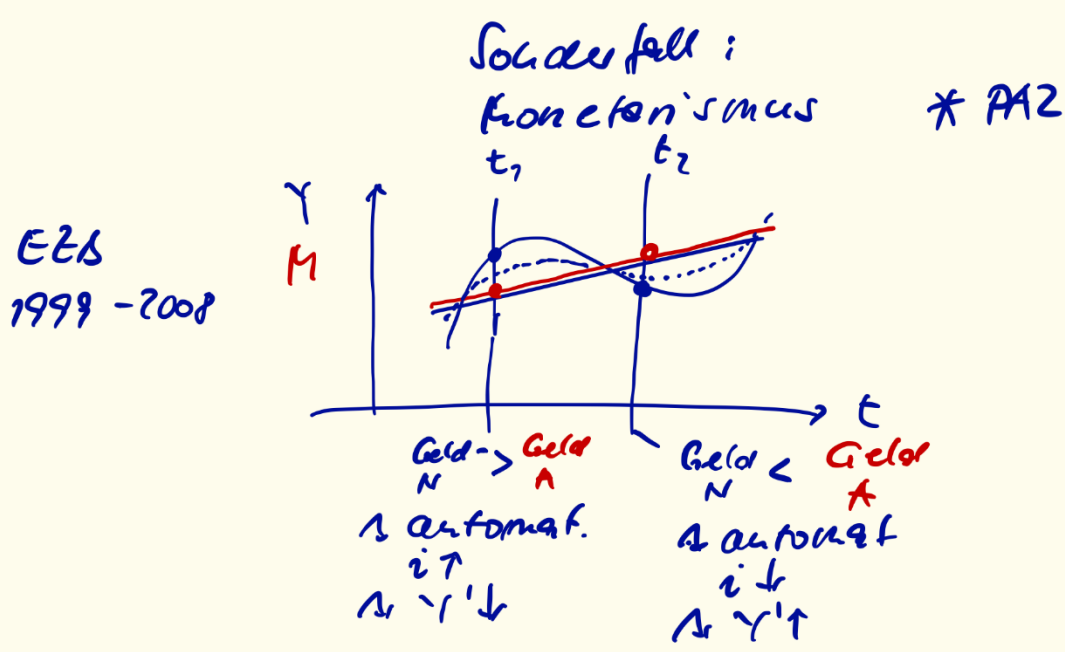 Sonderfall:
Monetarismus
* PA2
t₁
t₂
Y
M
EZB
1999 - 2008
t
Geld N > Geld A
→ automat.
i ↑
→ Y' ↓
Geld N < Geld A
→ automat
i ↓
→ Y' ↑